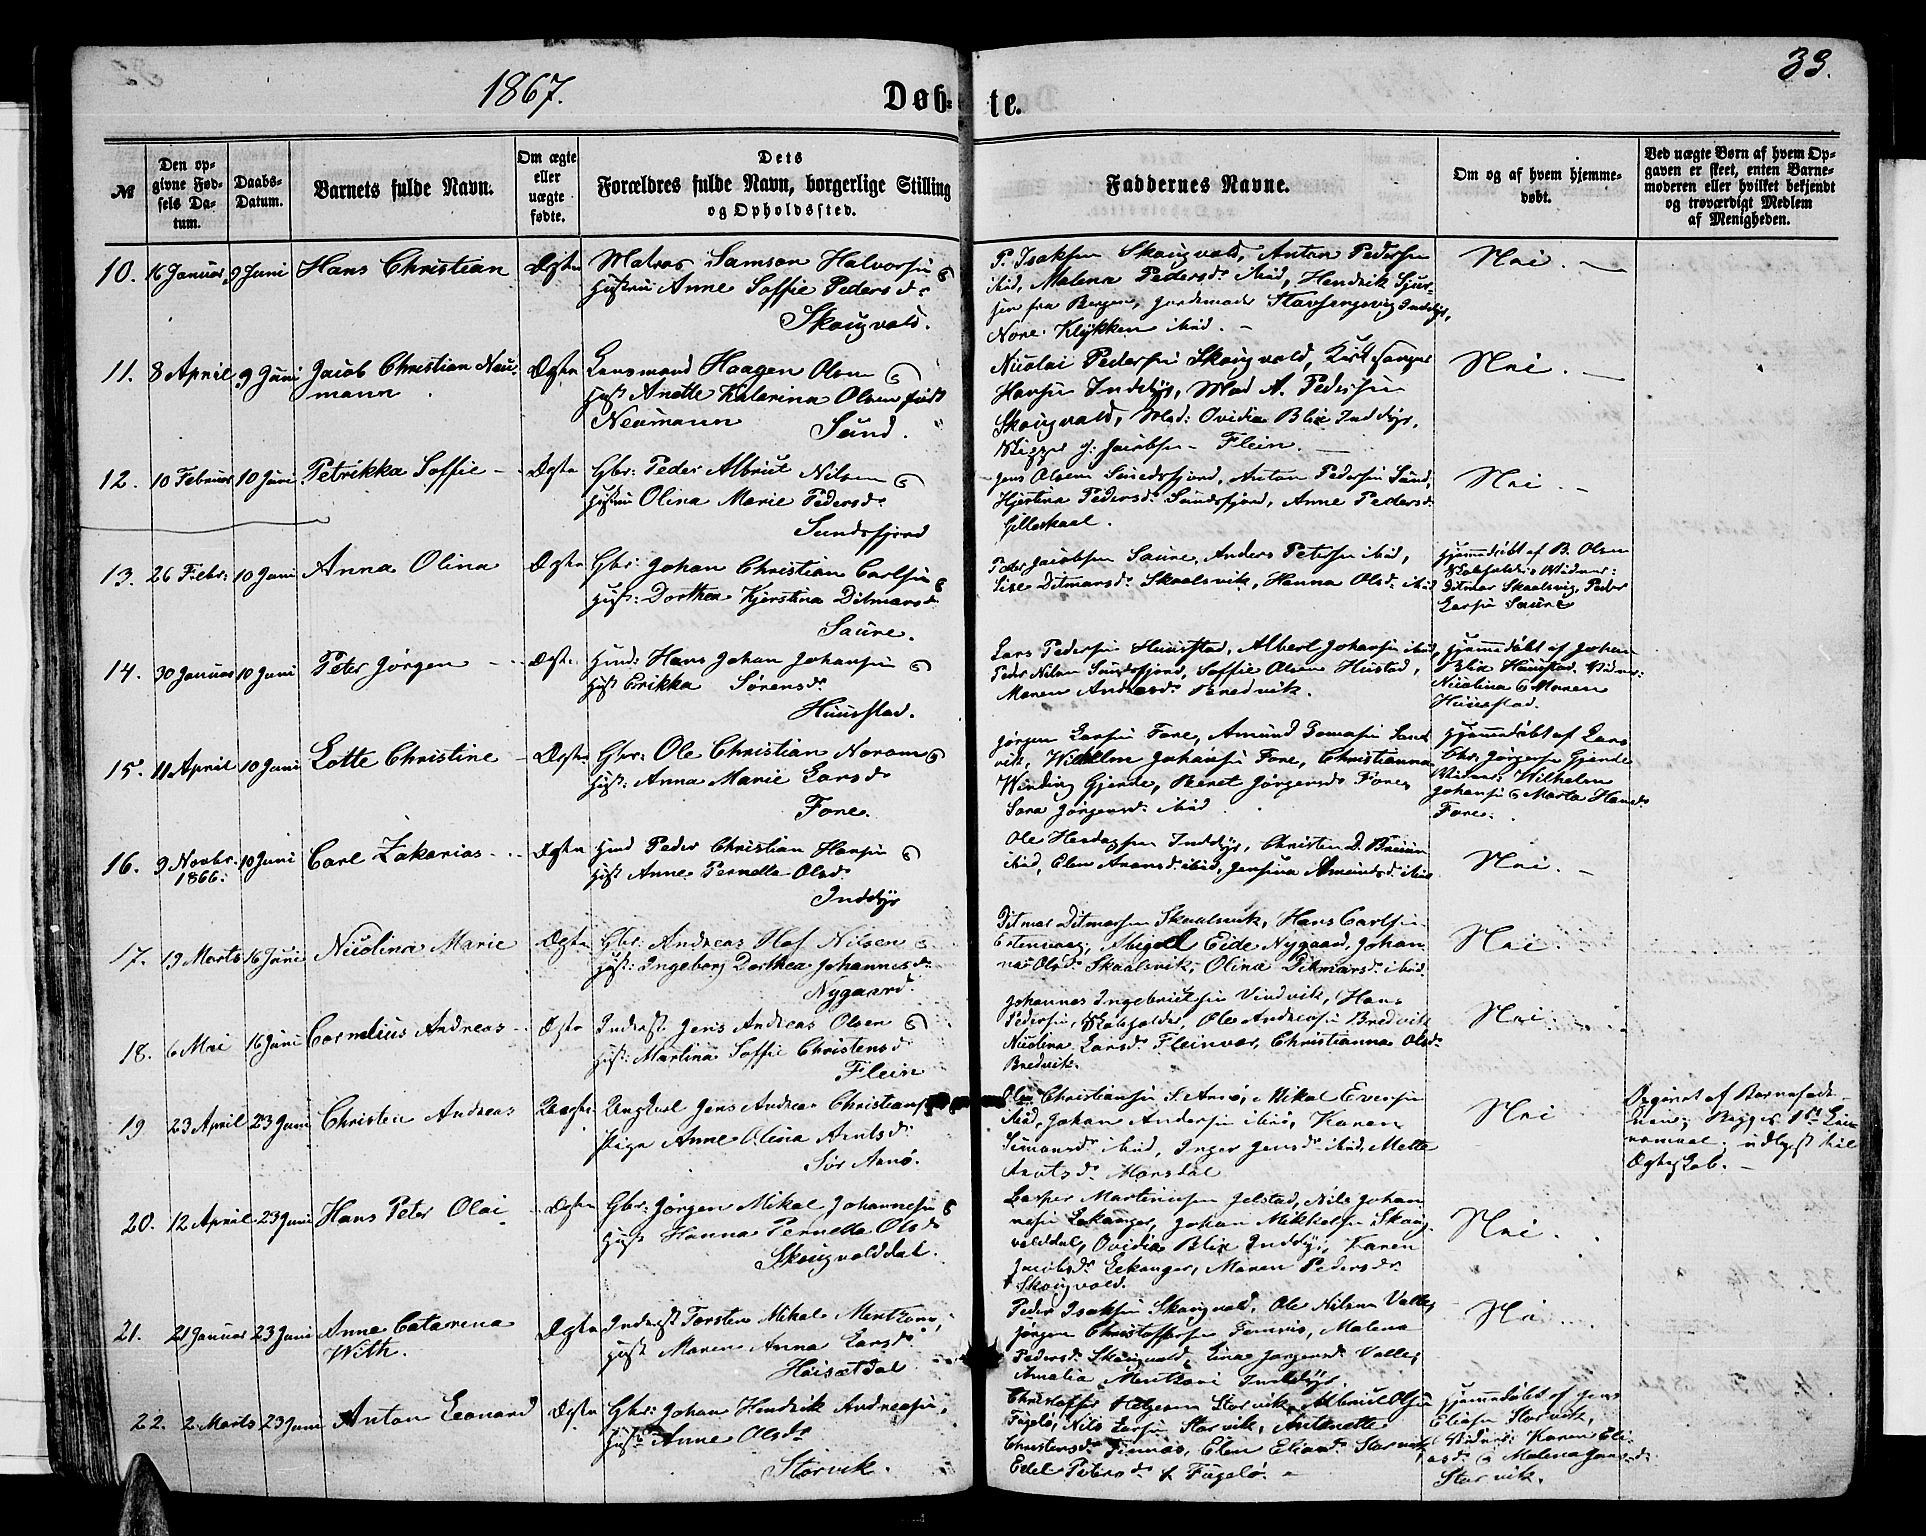 1867.
Døb-
te.
33.
№
Den op-
givne Fød-
sels Da-
tum.
Daabs-
Datum.
Barnets fulde Navn.
Om ægte
eller
uægte
fødte.
Dets
Forældres fulde Navn, borgerlige Stilling
og Opholdssted.
Faddernes Navne.
Om og af hvem hjemme-
døbt.
Ved uægte Børn af hvem Op-
gaven er skeet, enten Barne-
moderen eller hvilket bekjendt
og troværdigt Medlem
af Menigheden.
10. 16 Januar 9 Juni Hans Christian Ægte
Matros Samson Halvorsen &
Hustru Anne Soffie Pedersd.
Skougvold.
P. Isaksen Skougvold, Anton Pedersen
ibid, Malena Pedersd. ibid, Hendrik
fra Bergen, Jordemoder Inddyr,
Klykken ibid.
Nei.
11. 8 April 9 Juni Jacob Christian Neu-
mann Ægte
Lensmand Haagen Olsen &
Hust Anette Katarina Olsen født
Neumann Sund.
Nicolai Pedersen Skougvold, Kirkesanger
Hansen Inddyr, Mad A. Pedersen
Skougvold, Mad: Ovidia Blix Inddyr,
J: Jacobsen Flein.
Nei.
12. 10 Februar 10 Juni Petrikka Soffie Ægte
Gbr: Peder Albrict Nilsen &
Hustru Olina Marie Pedersd.
Sundsfjord
Jens Olsen Sundsfjord, Anton Pedersen Sund,
Hjertina Pedersd. Sundsfjord, Anne Pedersd.
Gilleskaal.
Nei.
13. 26 Febr: 10 Juni Anna Olina Ægte
Gbr: Johan Christian Carlsen &
Hust: Dorthea Kjerstina Ditmarsd.
Saure.
Peder Jacobsen Saure, Anders Petersen ibid,
Ditmarsd. Skaalsvik, Hanna Olsd. ibid
Hjemmdøbt af B. Olsen
Vidner:
Ditmar Skaalsvig, Peder
Larsen Saure
14. 30 Januar 10 Juni Peter Jørgen Ægte
Hmd: Hans Johan Johansen &
Hust Erikka Sørensd.
Huustad.
Lars Pedersen Huustad, Albert Johansen ibid,
Peder Nilsen Sundsfjord, Soffie Olsen Hustad,
Maren Andreasd. Bredvik.
Hjemmdøbt af Johan
Blix Huustad. Vidner:
Nicolina & Maren
Huustad.
15. 11 April 10 Juni Lotte Christine Ægte
Gbr: Ole Christian &
Hust: Anna Marie Larsd.
Fore.
Jørgen Larsen Fore, Amund
vik, Wilhelm Johansen Fore, Christianna
Winding Gjerde, Beret Jørgensd. Fore,
Sara Jørgensd. ibid
Hjemmdøbt af Lars
Chr: Jørgensen Gjerde
Vidner: Wilhelm
Johansen & Marta Hansd.
Fore.
16. 9 Novbr. 10 Juni Carl Zakarias Ægte
1866.
Hmd Peder Christian Hansen &
Hust Anne Pernella Olsd.
Inddyr
Ole Inddyr, Christen D.
ibid, Elen ibid, Jensina Amundsd. ibid
Nei.
17. 19 Marts 16 Juni Nicolina Marie Ægte
Gbr: Andreas Hof Nilsen &
Hust: Ingeborg Dorthea Johannesd.
Nygaard.
Ditmar Ditmarsen Skaalsvik, Hans Carlsen
Abigael Eide Nygaard, Johan-
na Olsd. Skaalsvik, Olina Ditmarsd. ibid.
Nei.
18. 6 Mai 16 Juni Cornelius Andreas Ægte
Inderst Jens Andreas Olsen &
Hust: Martina Soffie Christensd.
Flein
Johannes Ingebrictsen Vindvik, Hans
Pedersen, Ole Andreasen Bredvik
Nicolina Larsd. Fleinvær, Christianna Olsd.
Bredvik.
Nei.
19 23 April 23 Juni Christen Andreas Uægte
Ungkarl Jens Andreas Christians
Pige Anne Olina Arntsd.
Sør Arnø.
Ole Christiansen S. Arnø, Mikal Eversen
ibid, Johan Andersen ibid, Karen
Simonsd. ibid, Inger Jensd. ibid, Mette
Arntsd. Horsdal
Nei
Opgivet af Barnefade-
ren; Begges 1ste Leier-
maal; udlyst til
Ægteskab.
20. 12 April 23 Juni Hans Peter Olai Ægte
Gbr: Jørgen Mikal Johannesen &
Hust Hanna Pernella Olsd.
Skougvolddal.
Casper Martinusen Jelstad, Nils Johan-
nesen Eekanger, Johan Mikkelsen Skoug-
volddal, Ovidia Blix Inddyr, Karen
Jacobsd. Eekanger, Maren Pedersd.
Skougvold.
Nei.
21. 21 Januar 23 Juni Anne Catarina
With. Ægte
Inderst Torsten Mikal Mentzoni,
Hust Maren Anna Larsd.
Høisætdal
Peder Isaksen Skougvold, Ole Nilsen Valle,
Jørgen Christoffersen Malena
Pedersd. Skougvold, Lina Jørgensd. Valle,
Amalia Mentzoni Inddyr.
Nei
22. 2 Marts 23 Juni Anton Leonard Ægte
Gbr: Johan Hendrik Andreasen,
Hust: Anne Olsd.
Storvik.
Christoffer Helgesen Storvik, Albrict Olsen
Fugelø, Nils Larsen Storvik, Antonette
Christensd. Elen Eliasd. Storvik,
Edel Petersd. Fugelø.
Hjemmdøbt af Jens
Eliasen Storvik,
Vidner: Karen Eli-
asd. & Malena Jensd.
Storvik.